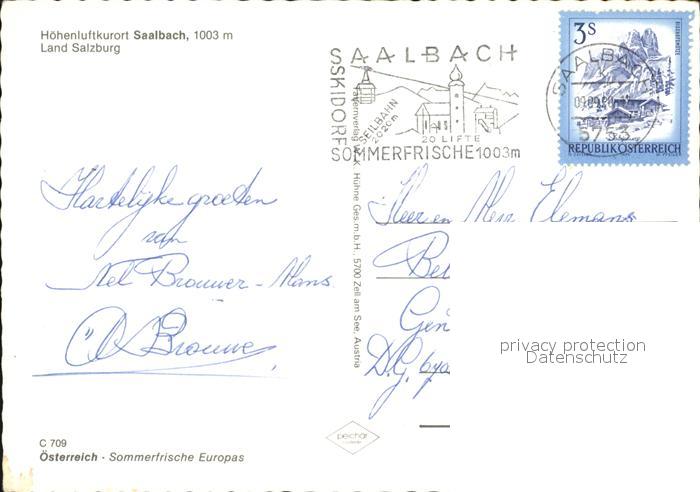 Höhenluftkurort Saalbach, 1003 m
Land Salzburg
SAALBACH
SKIDORF
SEILBAHN
2020m
20 LIFTE
SOMMERFRISCHE 1003m
3S
SAALBACH
5753
REPUBLIK ÖSTERREICH
Hartelijke groeten
van
Nel Brouwer - Mans
Brouwer
Hühne Ges.m.b.H., 5700 Zell am See, Austria
Heer en Mevr Elemans
Gen
privacy protection
Datenschutz
peichär
C 709
Österreich · Sommerfrische Europas